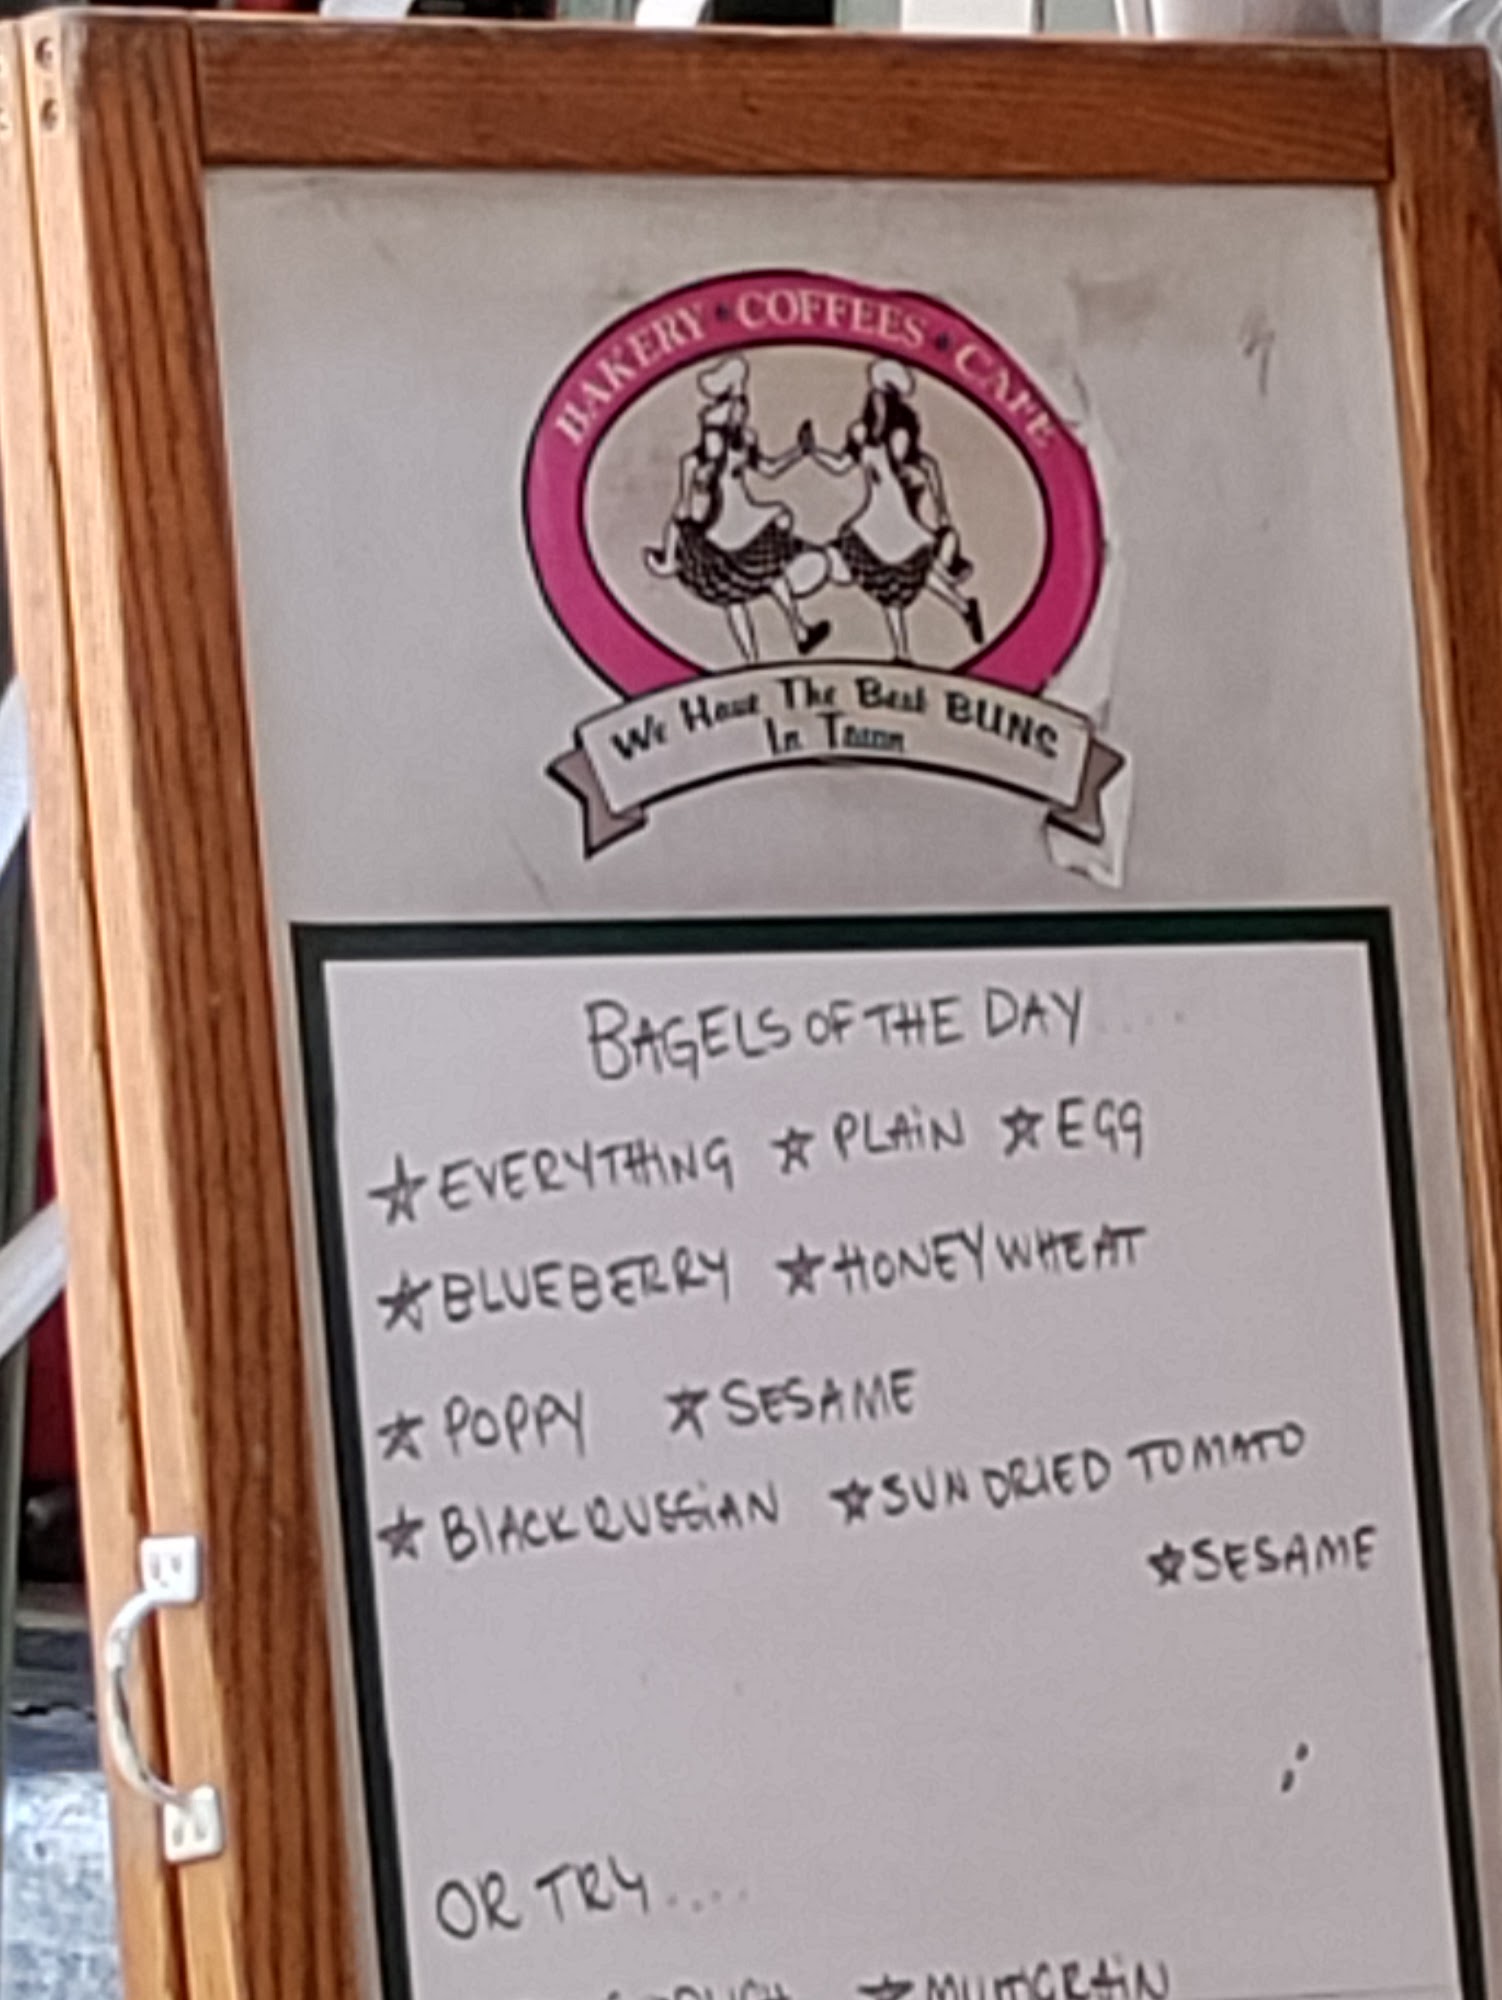 BAKERY • COFFEES • CAFE
We Have The Best BUNS
In Town
BAGELS OF THE DAY....
☆ EVERYTHING ☆ PLAIN ☆ EGG
☆ BLUEBERRY ☆ HONEY WHEAT
☆ POPPY ☆ SESAME
☆ BLACK RUSSIAN ☆ SUN DRIED TOMATO
☆ SESAME
OR TRY....
☆ MULTIGRAIN